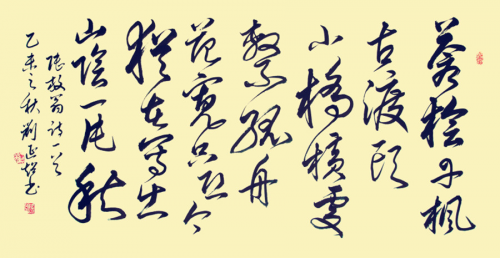 蒼檜丹楓
古渡頭
小橋橫處
繫孤舟
范寬只恐今
猶在寫出
山陰一片秋
陸放翁詩一首
乙未之秋